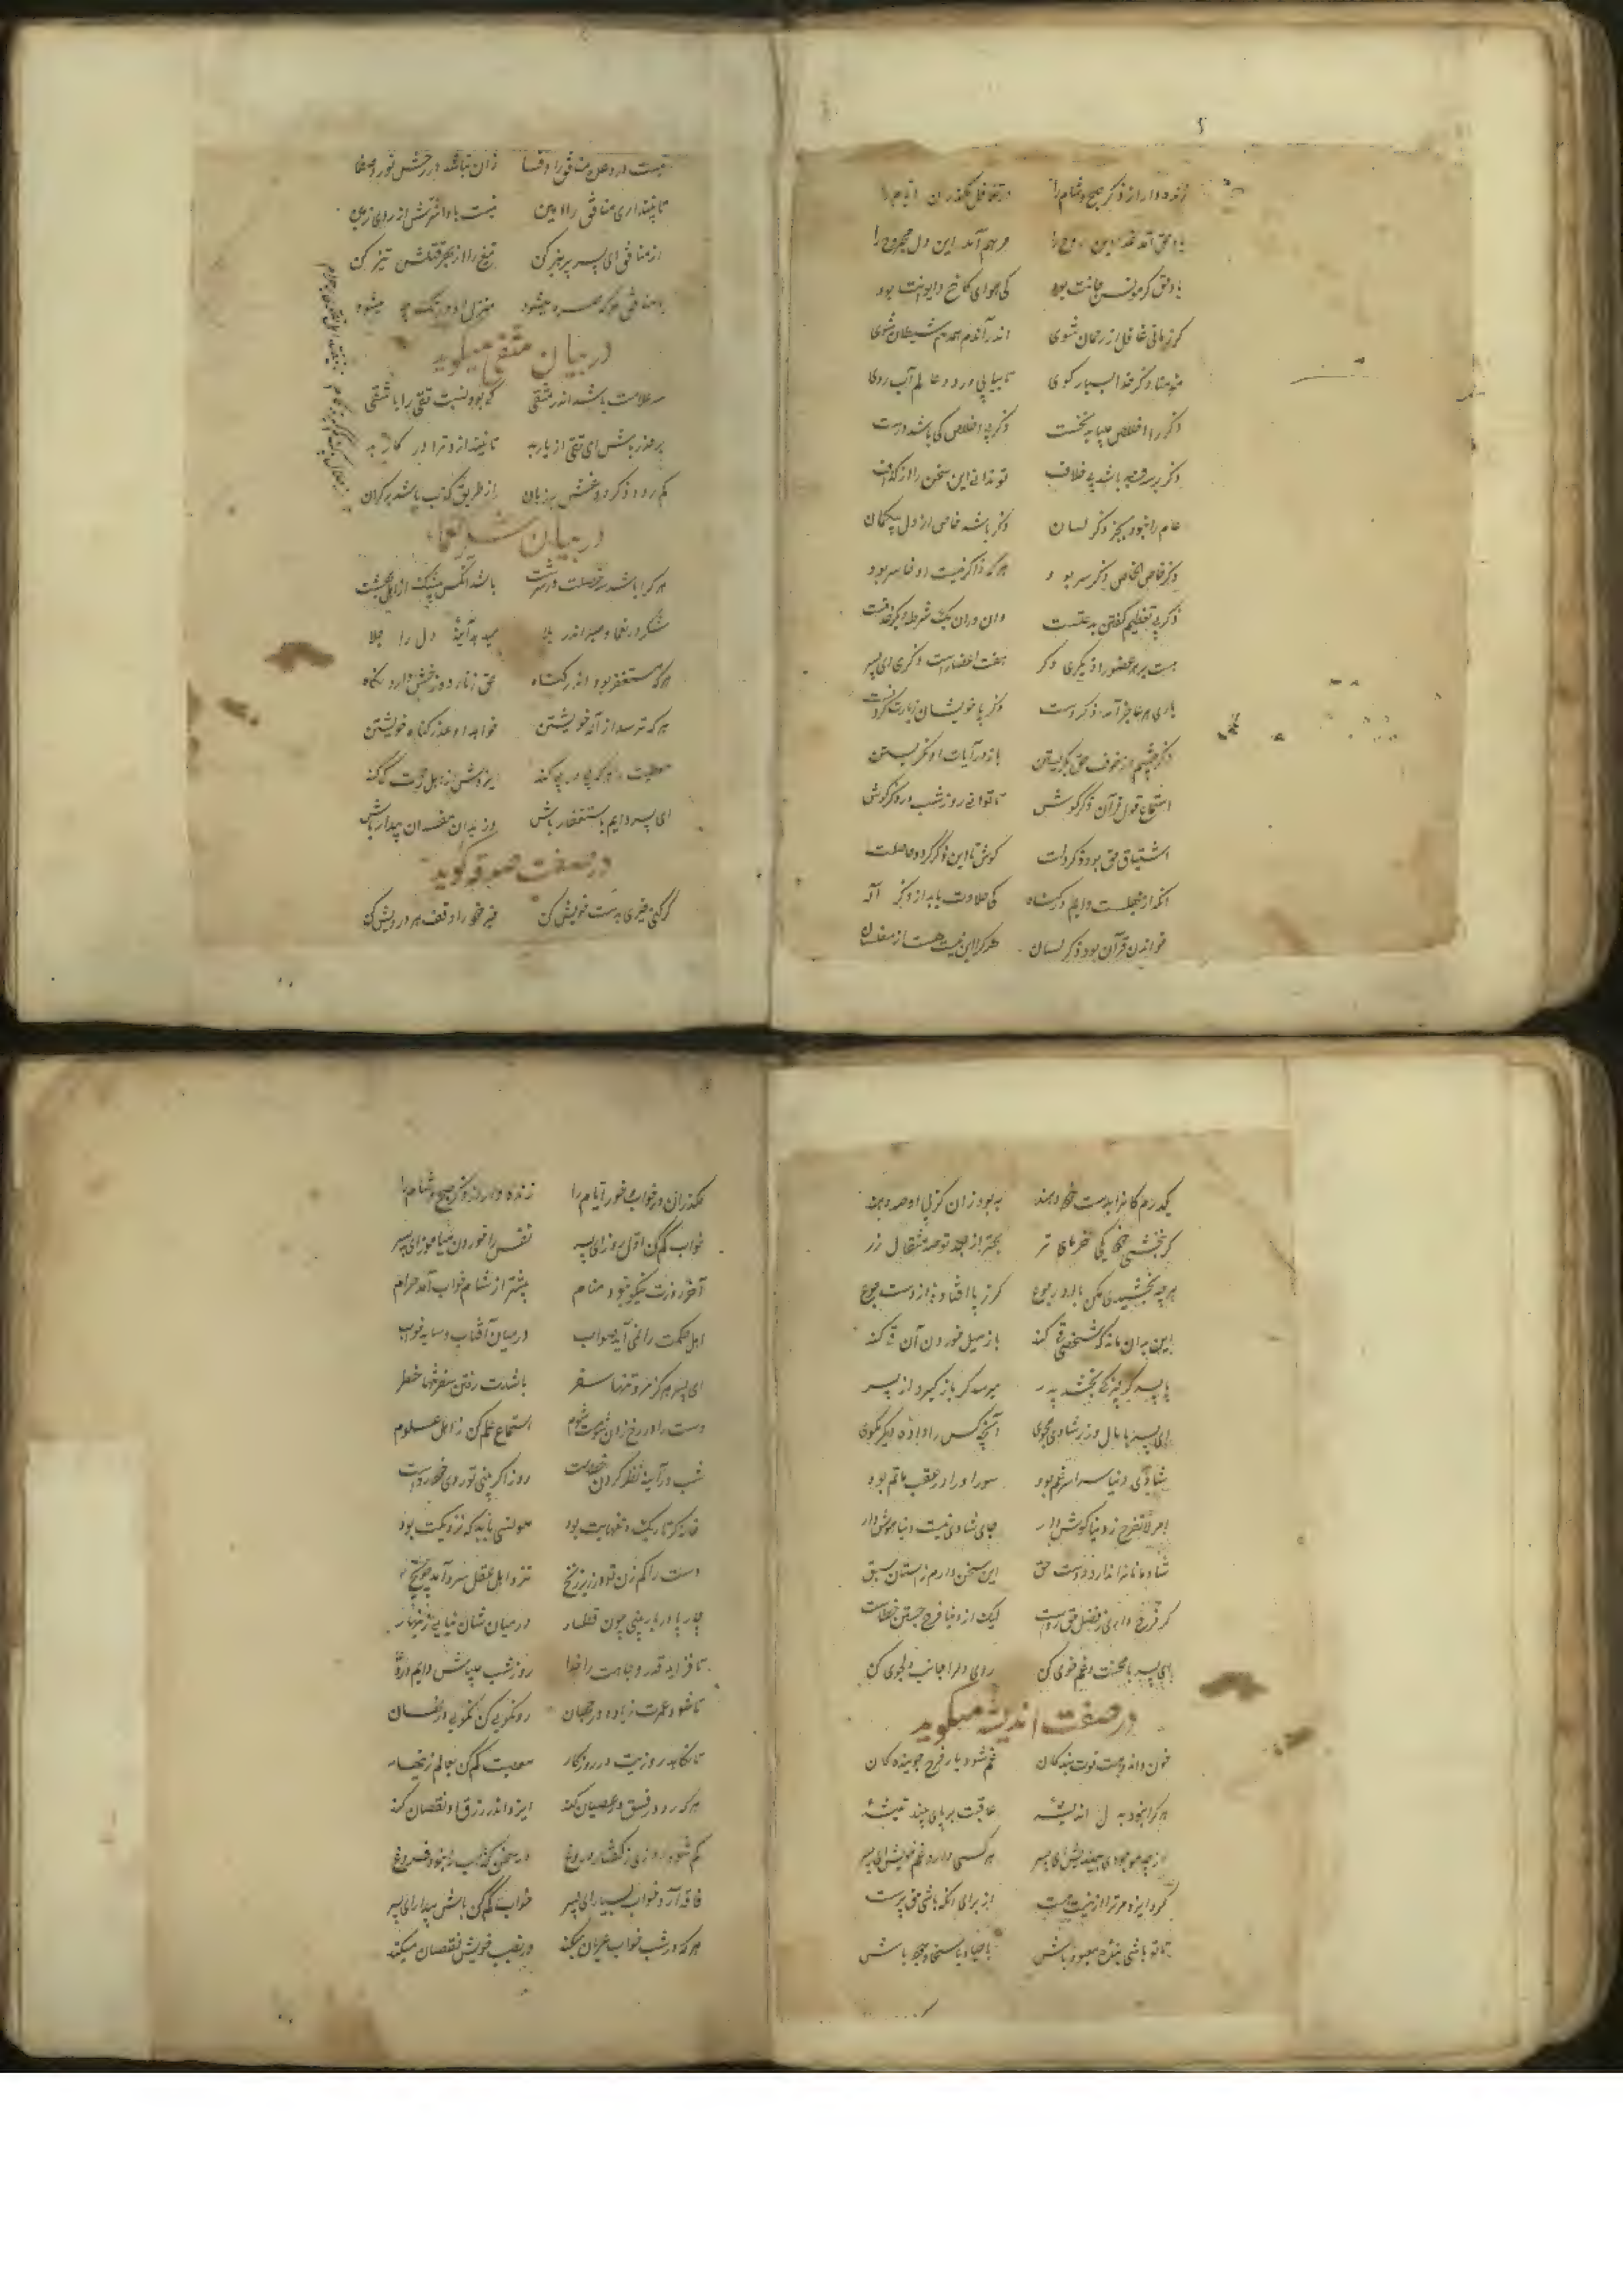 زنده دار از ذکر صبح و شام را در تغافل مگذران ایام را
یاد حق آمد غذا این روح را مرهم آمد این دل مجروح را
یاد حق گر مونس جانت بود کی هوای کاخ و ایوانت بود
گر زمانی غافل از رحمان شوی اندر آندم همدم شیطان شوی
مومنا ذکر خدا بسیار گوی تا بیابی در دو عالم آب روی
ذکر را اخلاص میباید نخست ذکر بی اخلاص کی باشد درست
ذکر بر سه وجه باشد بی خلاف تو ندانی این سخن را از گزاف
عام را نبود بجز ذکر لسان ذکر باشد خاص از دل بیگمان
ذکر خاص الخاص ذکر سر بود هر که ذاکر نیست او خاسر بود
ذکر بی تعظیم گفتن بدعتست وان دران یک شرط دیگر حرمتست
هست بر هر عضو را ذکری دگر هفت اعضا راست ذکری ای پسر
یاری هر عاجز آمد ذکر دست ذکر پا خویشان زیارت کردنست
ذکر چشم از خوف حق بگریستن باز در آیات او نگریستن
استماع قول قرآن ذکر گوش تا توانی روز شب در ذکر کوش
اشتیاق حق بود ذکر دلت کوش تا این ذکر گردد حاصلت
آنکه از جهلست دایم در گناه کی حلاوت یابد از ذکر آله
خواندن قرآن بود ذکر لسان هر کرا این نیست هست از مفلسان
نیست در وعده منافق را وفا زان نباشد در رخش نور و صفا
تا نپنداری منافق را امین نیست بادا شومش از روی زمین
از منافق ای پسر پرهیز کن تیغ را از بهر قتلش تیز کن
با منافق هر که همره میشود منزل او در تک چه میشود
در بیان متقی میگوید
سه علامت باشد اندر متقی که بود نسبت تقی را با شقی
بر حذر باش ای تقی از یار بد تا نیندازد ترا در کار بد
کم رود ذکر دروغش بر زبان از طریق کذب باشد بر کران
در بیان شکر نعماء
هر کرا باشد سه خصلت در سرشت باشد آنکس بیشک از اهل بهشت
شکر در نعما و صبر اندر بلا میدهد آیینه دل را جلا
هر که مستغفر بود اندر گناه حق ز نار دوزخش دارد نگاه
هر که ترسد از آله خویشتن خواهد او عذر گناه خویشتن
معصیت را هر که پی در پی کند ایزدش از اهل رحمت کی کند
ای پسر دایم باستغفار باش وز بدان مفسدان بیزار باش
در صفت صدقه گوید
گر کنی خیری بدست خویش کن خیر خود را وقف هر درویش کن
یکدرم کانرا بدست خود دهند به بود زان کز پی او صد دهند
گر ببخشی خود یکی خرمای تر بهتر از بعد تو صد مثقال زر
هر چه بخشیدی مکن با او رجوع گر ز پا افتاده از دست جوع
این بدان ماند که شخصی قی کند باز میل خوردن آن قی کند
با پسر گر چیزکی بخشد پدر میرسد گر باز گیرد از پسر
ای پسر با مال و زر شادی مجوی آنچه کس را داده دیگر مگوی
شادی دنیا سراسر غم بود سور او را در عقب ماتم بود
امر لا تفرح ز دنیا گوش دار جای شادی نیست دنیا هوش دار
شادمانانرا ندارد دوست حق این سخن دارم ز استادان سبق
گر فرح داری ز فضل حق رواست لیک از دنیا فرح جستن خطاست
ای پسر با محنت و غم خوی کن روی دلرا جانب دلجوی کن
در صفت اندیشه میگوید
حزن و اندوهست قوت بندگان غم شود یار فرح جوینده گان
هر کرا نبود به دل اندیشه عاقبت بر پای بیند تیشه
از چه موجودی بیندیش ای پسر هر کسی دارد غم خویش ای پسر
کرد ایزد مر ترا از نیست هست از برای آنکه باشی حق پرست
تا تو باشی بنده معبود باش با حیا و با سخا و جود باش
مگذران در خواب و خور ایام را زنده دار از ذکر صبح و شام را
خواب کم کن اول روز ای پسر نفس را خوردن میاموز ای پسر
آخر روزت نکو نبود منام پیشتر از شام خواب آمد حرام
اهل حکمت را نمی آید صواب در میان آفتاب و سایه خواب
ای پسر هرگز مرو تنها سفر باشدت رفتن سفر تنها خطر
دست را در رخ زدن شومست شوم استماع علم کن ز اهل علوم
شب در آیینه نظر کردن خطاست روز اگر بینی تو روی خود رواست
خانه گر تاریک و تنهایت بود مونسی باید که نزدیکت بود
دست را کم زن تو در زیر زنخ نزد اهل عقل سرد آمد چو یخ
چارپا را چو بینی چون قطار در میان شان نیایی زینهار
تا فزاید قدر و جاهت را خدا روز شب میباش دایم در دعا
تا شود عمرت زیاده در جهان رو نکویی کن نکویی در نهان
تا نکاهد روزیت در روزگار معصیت کم کن بعالم زینهار
هر که رو در فسق و عصیان کند ایزد اندر رزق او نقصان کند
کم شود روزی ز گفتار دروغ در سخن کذاب را نبود فروغ
فاقه آرد خواب بسیار ای پسر خواب کم کن باش بیدار ای پسر
هر که در شب خواب عریان میکند در نصیب خویش نقصان میکند